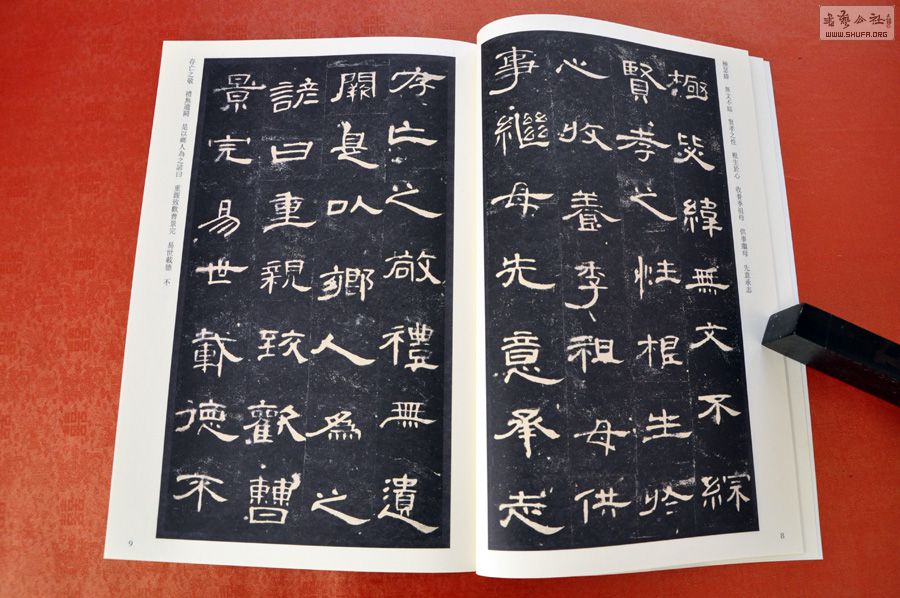 書藝公社
WWW.SHUFA.ORG
極毖緯 無文不綜 賢孝之性 根生於心 收養季祖母 供事繼母 先意承志
極毖緯無文不綜
賢孝之性根生於
心收養季祖母供
事繼母先意承志
8
存亡之敬禮無遺
闕是以鄉人為之
諺曰重親致歡曹
景完易世載德不
存亡之敬 禮無遺闕 是以鄉人為之諺曰 重親致歡曹景完 易世載德 不
9